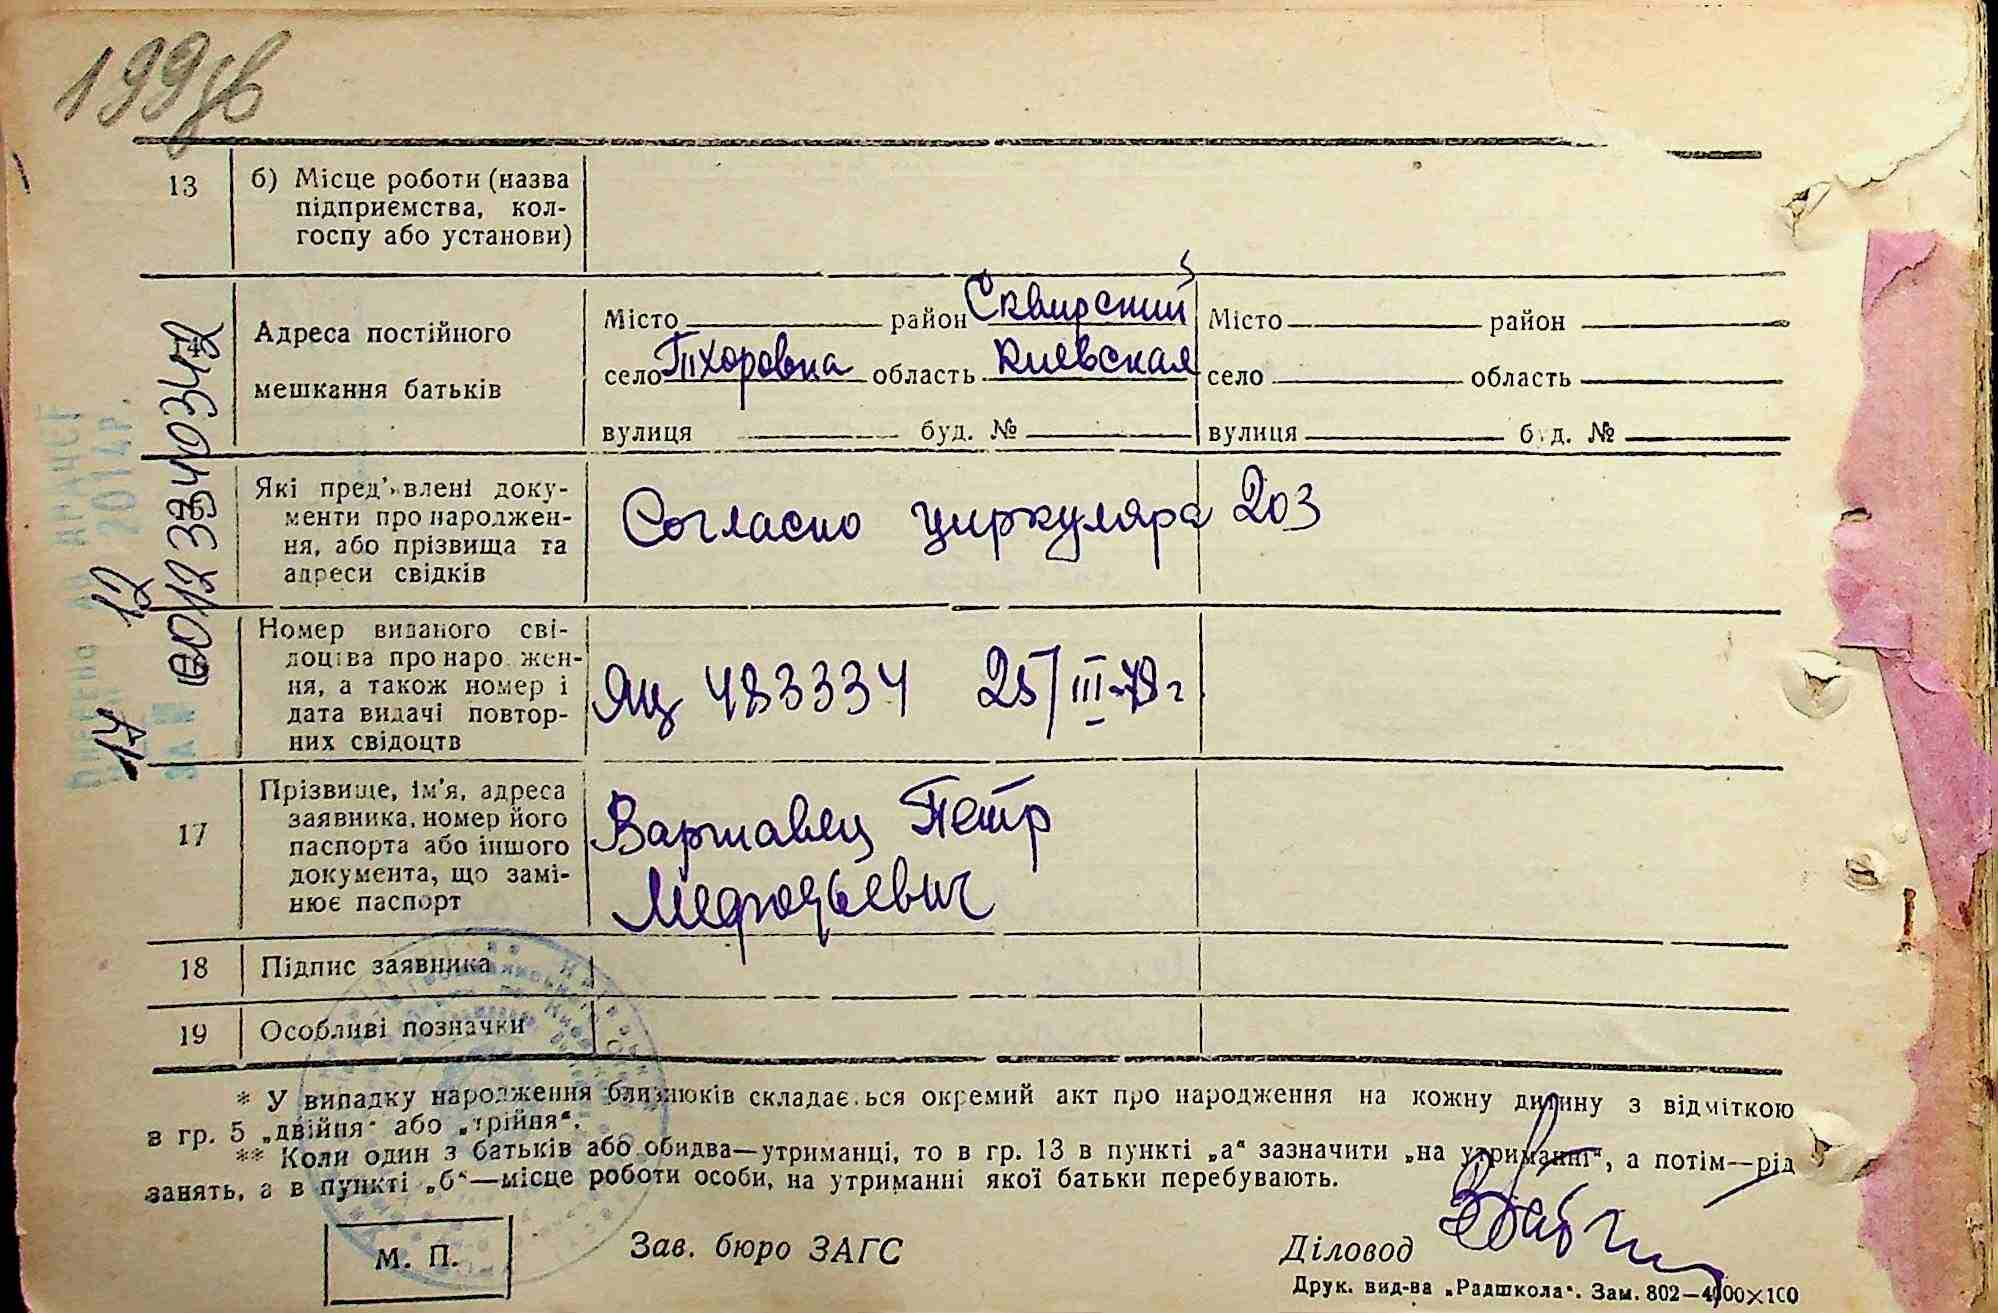 199 зв
13 б) Місце роботи (назва
підприємства, кол-
госпу або установи)
Адреса постійного
мешкання батьків
Місто район Сквирский Місто район
село Тхоровка область Киевская село область
вулиця буд. № вулиця б д. №
Які пред'явлені доку-
менти про народжен-
ня, або прізвища та
адреси свідків
Согласно циркуляра 203
Номер виданого сві-
доцтва про народжен-
ня, а також номер і
дата видачі повтор-
них свідоцтв
Яц 483334 25/III-79 г
17 Прізвище, ім'я, адреса
заявника, номер його
паспорта або іншого
документа, що замі-
нює паспорт
Варшавец Петр
Мефодьевич
18 Підпис заявника
19 Особливі позначки
* У випадку народження близнюків складається окремий акт про народження на кожну дитину з відміткою
в гр. 5 „двійня" або „трійня".
** Коли один з батьків або обидва—утриманці, то в гр. 13 в пункті „а" зазначити „на утриманні", а потім—рід
занять, а в пункті „б"—місце роботи особи, на утриманні якої батьки перебувають.
М. П.
Зав. бюро ЗАГС
Діловод
Друк. вид-ва „Радшкола". Зам. 802—4000×100
00123340342
17 12
2014р.